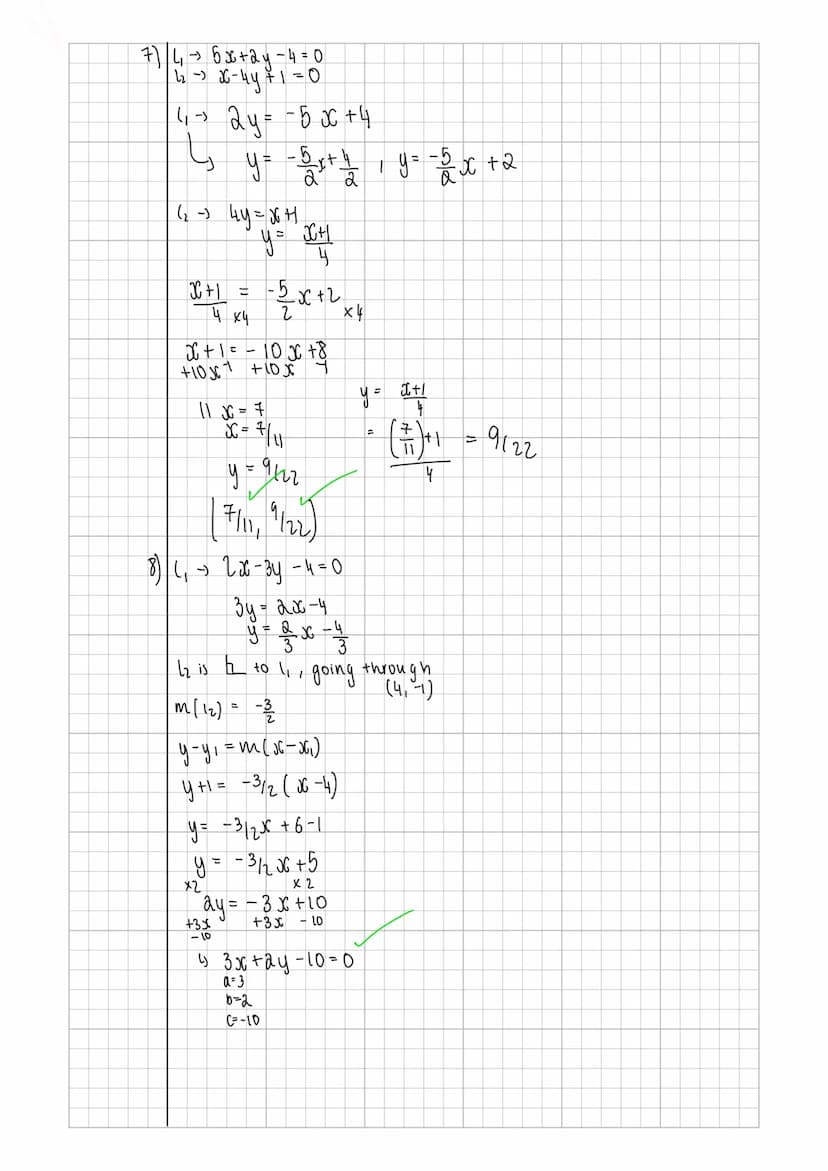 7) L₁ → 5x+2y-4=0
L₂ → x-4y+1=0
L₁ → 2y= -5x+4
y= -5/2x+4/2 , y= -5/2x+2
L₂ → 4y=x+1
y= x+1/4
x+1/4 = -5/2x+2
×4 ×4
x+1= -10x+8
+10x -1 +10x -1
11x=7
x=7/11
y= x+1/4
= (7/11)+1/4 = 9/22
y=9/22
(7/11, 9/22)
8) L₁ → 2x-3y-4=0
3y=2x-4
y=2/3x-4/3
L₂ is ⊥ to L₁, going through
(4,-1)
m(L₂) = -3/2
y-y₁=m(x-x₁)
y+1= -3/2(x-4)
y= -3/2x+6-1
y= -3/2x+5
×2 ×2
2y= -3x+10
+3x +3x -10
-10
↳ 3x+2y-10=0
a=3
b=2
c=-10